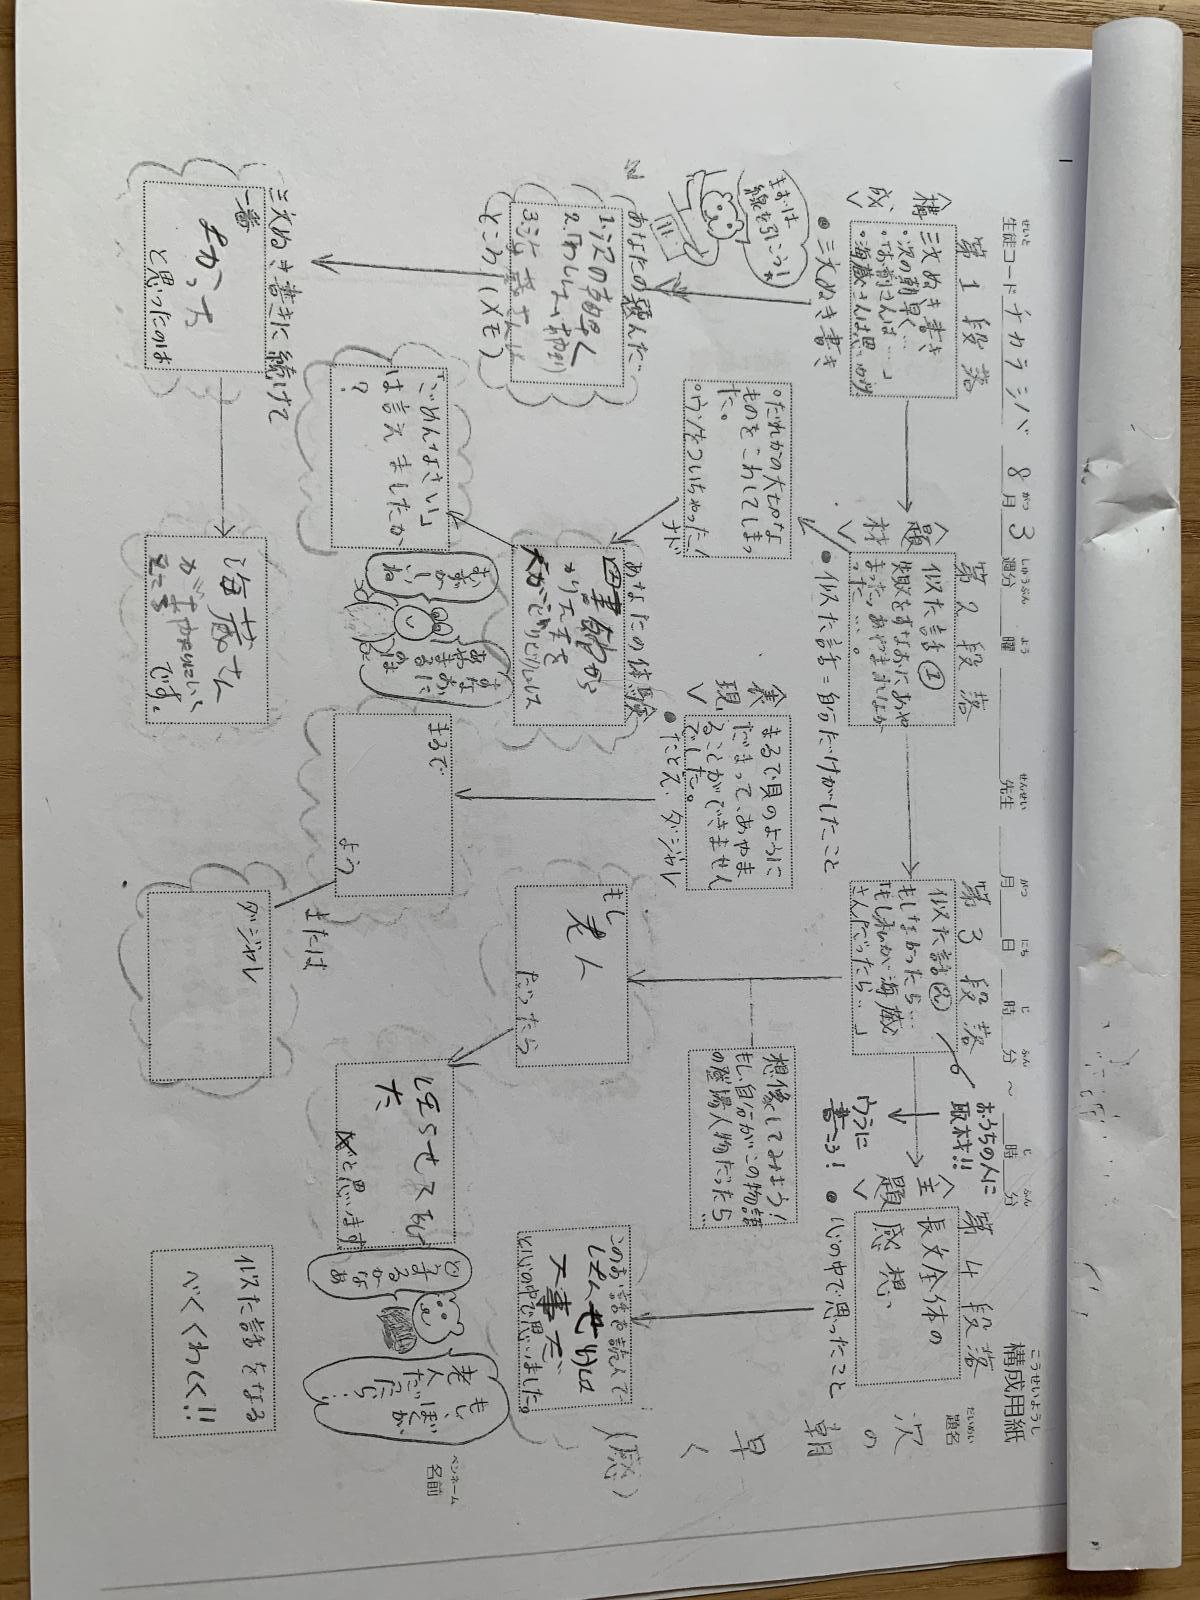 構成用紙
生徒コード チカラシバ 8月3週分 曜 先生 月 日 時 分 ～ 時 分
せいと
がつ
しゅうぶん
よう
せんせい
がつ
にち
じ
ふん
じ
ふん
こうせいようし
だいめい
題名
次の朝早く(感)
ペンネーム
名前
第1段落
<構成>
三文ぬき書き
・次の朝早く…
・「お前さんは……」
・海蔵さんは思いがけ
●三文ぬき書き
まずは
線を引こう!
あなたの選んだ
1.次の朝早く
3.海蔵さんは
ところ(メモ)
三文ぬき書きに続けて
一番
よかった
と思ったのは
海蔵さん
が
ところ
です。
第2段落
<題材>
似た話①
失敗をすなおにあや
まった。あやまれなか
った…。
●似た話=自分だけがしたこと
・だれかの大切な
ものをこわしてしまっ
た。
・ウソをついちゃった!
ナド
あなたの体験
図書館から
かりた本を
「ごめんなさい」
は言えましたか
?
すなおに
あやまる
のは
むずか
しい
ね
<表現>
まるで貝のように
だまって、あやま
ることができません
でした。
●たとえ・ダジャレ
まるで
よう
または
ダジャレ
第3段落
似た話②
もしなかったら…
「もし私が海蔵
さんだったら…」
おうちの人に
取材!!
ウラに
書こう!
想像してみよう!
もし、自分がこの物語
の登場人物だったら…
もし
老人
だったら
ほらせてあげ
た
と思います
もし、
ぼくが
老人
だったら!
どう
する
かな
あ
第4段落
<主題>
長文全体の
感想
●心の中で思ったこと
このお話を読んで
大事だ
と心の中で思いました。
似た話をなる
べくくわしく!!